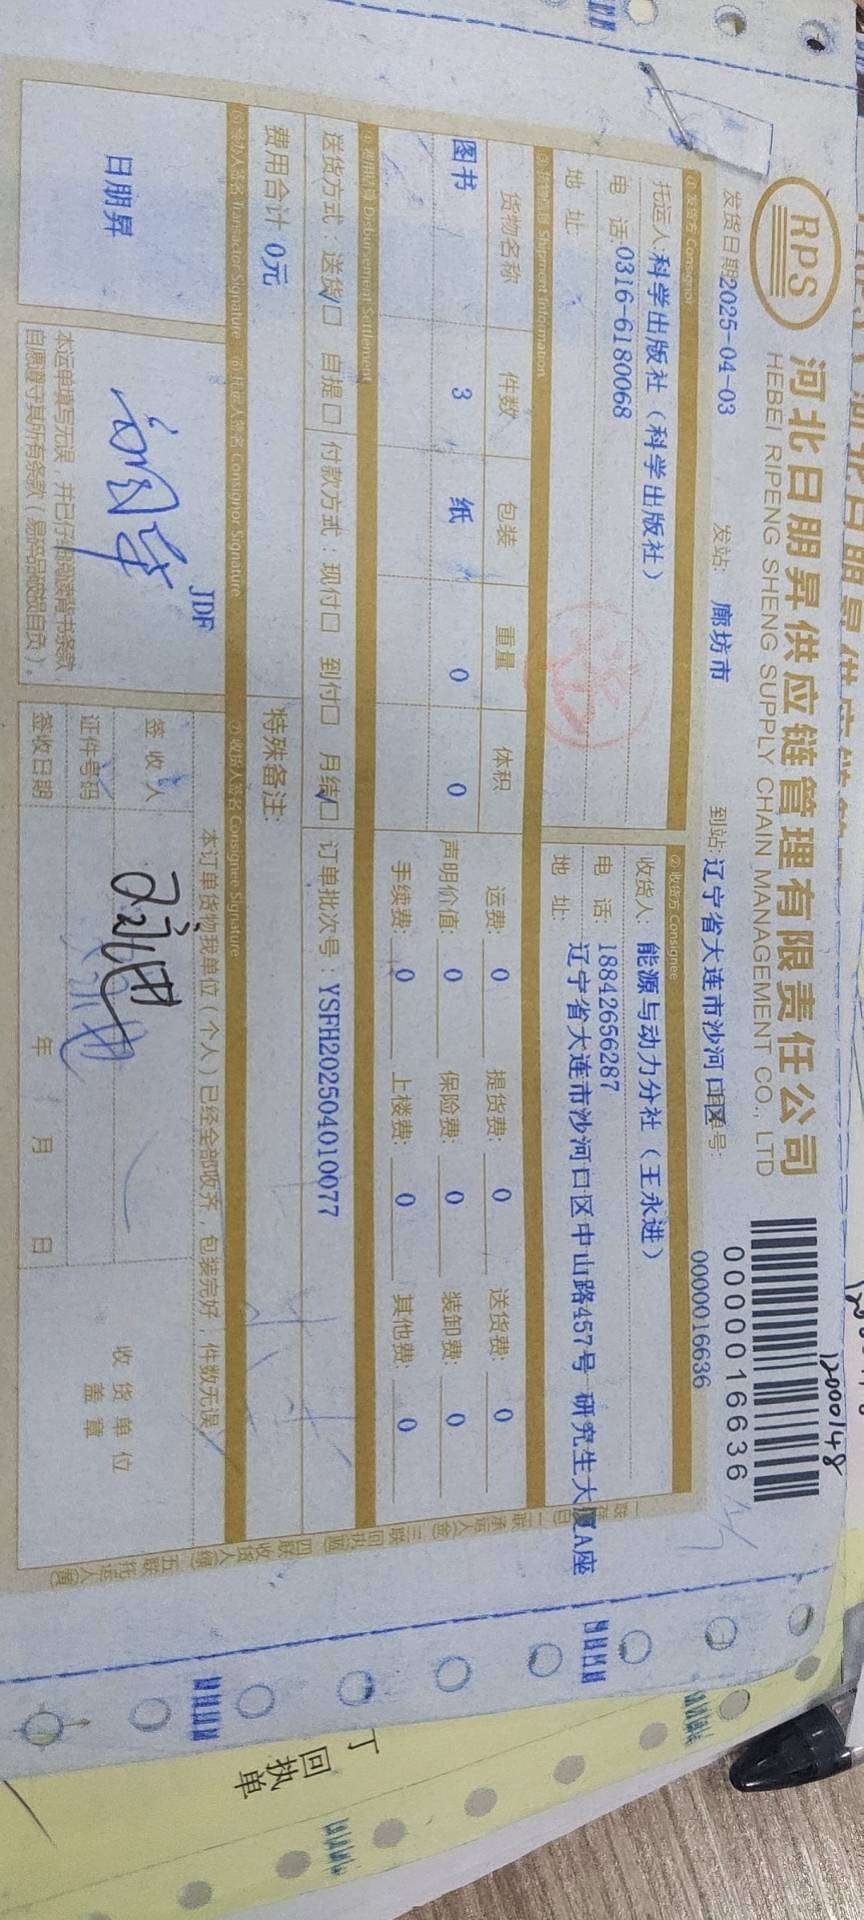 RPS
河北日朋昇供应链管理有限责任公司
HEBEI RIPENG SHENG SUPPLY CHAIN MANAGEMENT CO., LTD
12000148
0000016636
发货日期2025-04-03 发站: 廊坊市 到站:辽宁省大连市沙河口区 单号: 0000016636
① 发货方 Consignor
托运人 科学出版社（科学出版社）
电 话:0316-6180068
地 址:
② 收货方 Consignee
收货人: 能源与动力分社（王永进）
电 话: 18842656287
地 址: 辽宁省大连市沙河口区中山路457号 研究生大厦A座
③ 货物信息 Shipment Information
货物名称 件数 包装 重量 体积
图书 3 纸 0 0
运费: 0 提货费: 0 送货费: 0
声明价值: 0 保险费: 0 装卸费: 0
手续费: 0 上楼费: 0 其他费: 0
④ 费用结算 Disbursement Settlement
送货方式：送货☑ 自提□ 付款方式：现付□ 到付□ 月结☑ 订单批次号：YSFH202504010077
费用合计 0元 特殊备注:
⑤ 经办人签名 Transactor Signature
日朋昇
⑥ 托运人签名 Consignor Signature
JDF
本运单填写无误，并已仔细阅读背书条款
自愿遵守其所有条款（易碎品破损自负）。
⑦ 收货人签名 Consignee Signature
本订单货物我单位（个人）已经全部收齐，包装完好，件数无误
签 收 人
证件号码
签收日期 年 月 日
收货单位
盖 章
回执单